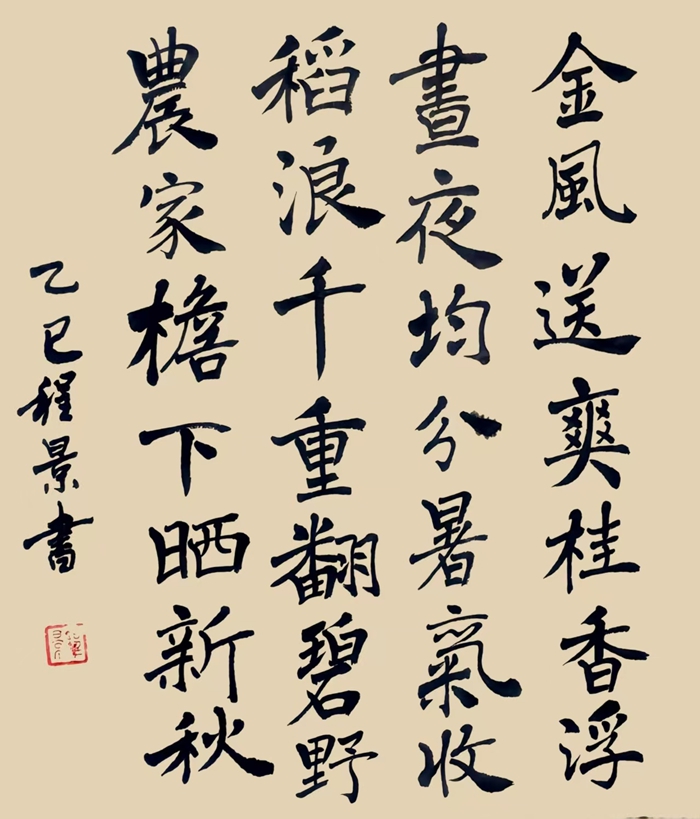 金風送爽桂香浮
晝夜均分暑氣收
稻浪千重翻碧野
農家檐下晒新秋
乙巳程景書